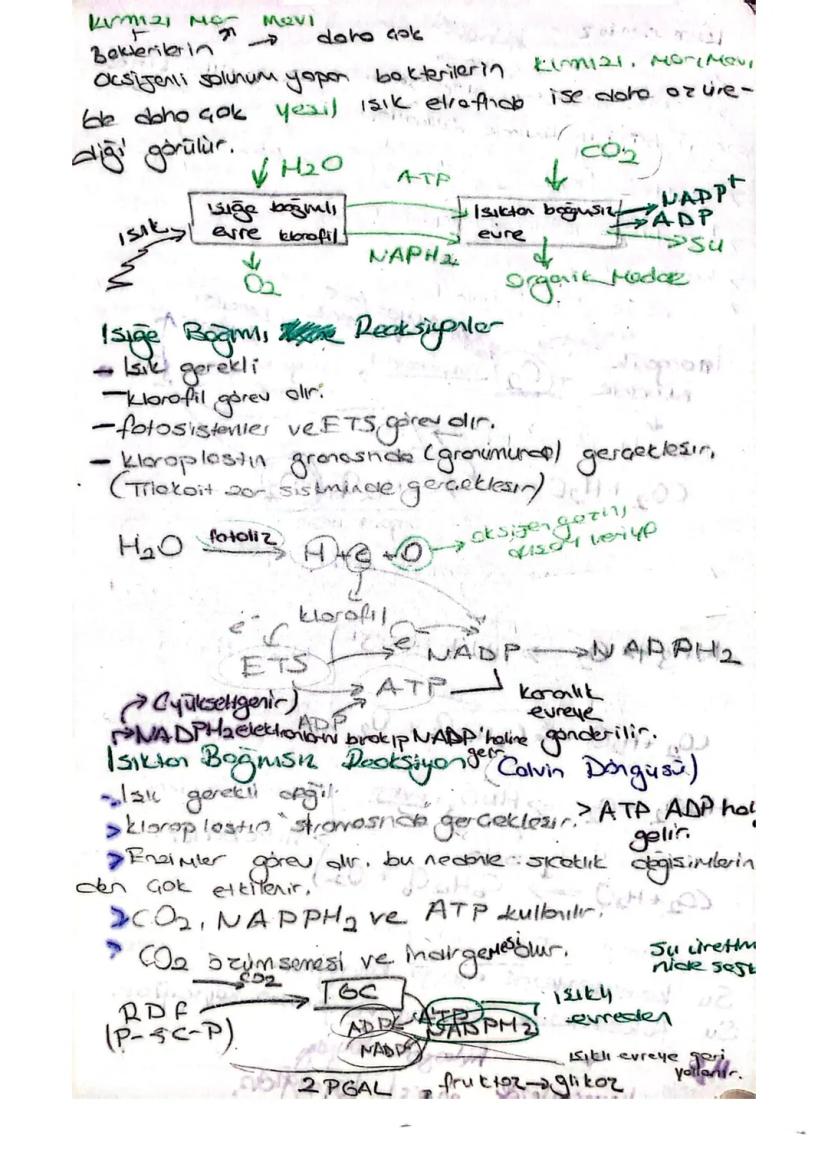 Kırmızı Mor Mavi
Bakterilerin → daha çok
Oksijenli solunum yapan bakterilerin kırmızı, Mor, Mavi
de daha çok yeşil ışık etrafında ise daha az üre-
diği görülür.
H2O
ATP
CO2
Işık
Işığa bağımlı
evre klorofil
Işıktan bağımsız
evre
NADP+
ADP
Su
NAPH2
O2
Organik Madde
Işığa Bağımlı Reaksiyonlar
- Işık gerekli
- klorofil görev alır.
- fotosistemler ve ETS görev alır.
- kloroplastın granasında (granumunda) gerçekleşir.
(Tilakoit zar sisteminde gerçekleşir)
H2O fotoliz → H + e + O → oksijen gazını
dışarı veriyor
klorofil
e- e
ETS → NADP → NADPH2
ATP
ADP
karanlık
evreye
gönderilir.
→ (yükseltgenir)
→ NADPH2 elektronlarını bırakıp NADP haline
gelir
Işıktan Bağımsız Reaksiyon (Calvin Döngüsü)
- Işık gerekli değil.
> kloroplastın stromasında gerçekleşir. > ATP ADP hal
gelir.
> Enzimler görev alır. bu nedenle sıcaklık değişimlerin
den çok etkilenir.
> CO2, NADPH2 ve ATP kullanılır.
> CO2 özümsemesi ve indirgemesi olur.
Su üretim
CO2
RDF
(P-5C-P)
ADP
ATP
NADPH2
NADP
ışıklı
evreden
ışıklı evreye geri
yollanır.
2 PGAL, fruktoz → glikoz